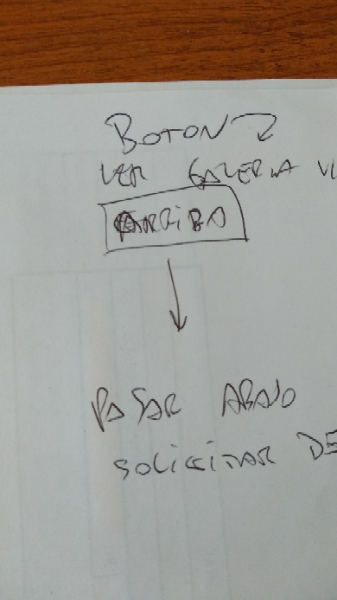 BOTON
VER GALERIA VI
ARRIBA
PASAR ABAJO
SOLICITAR DE